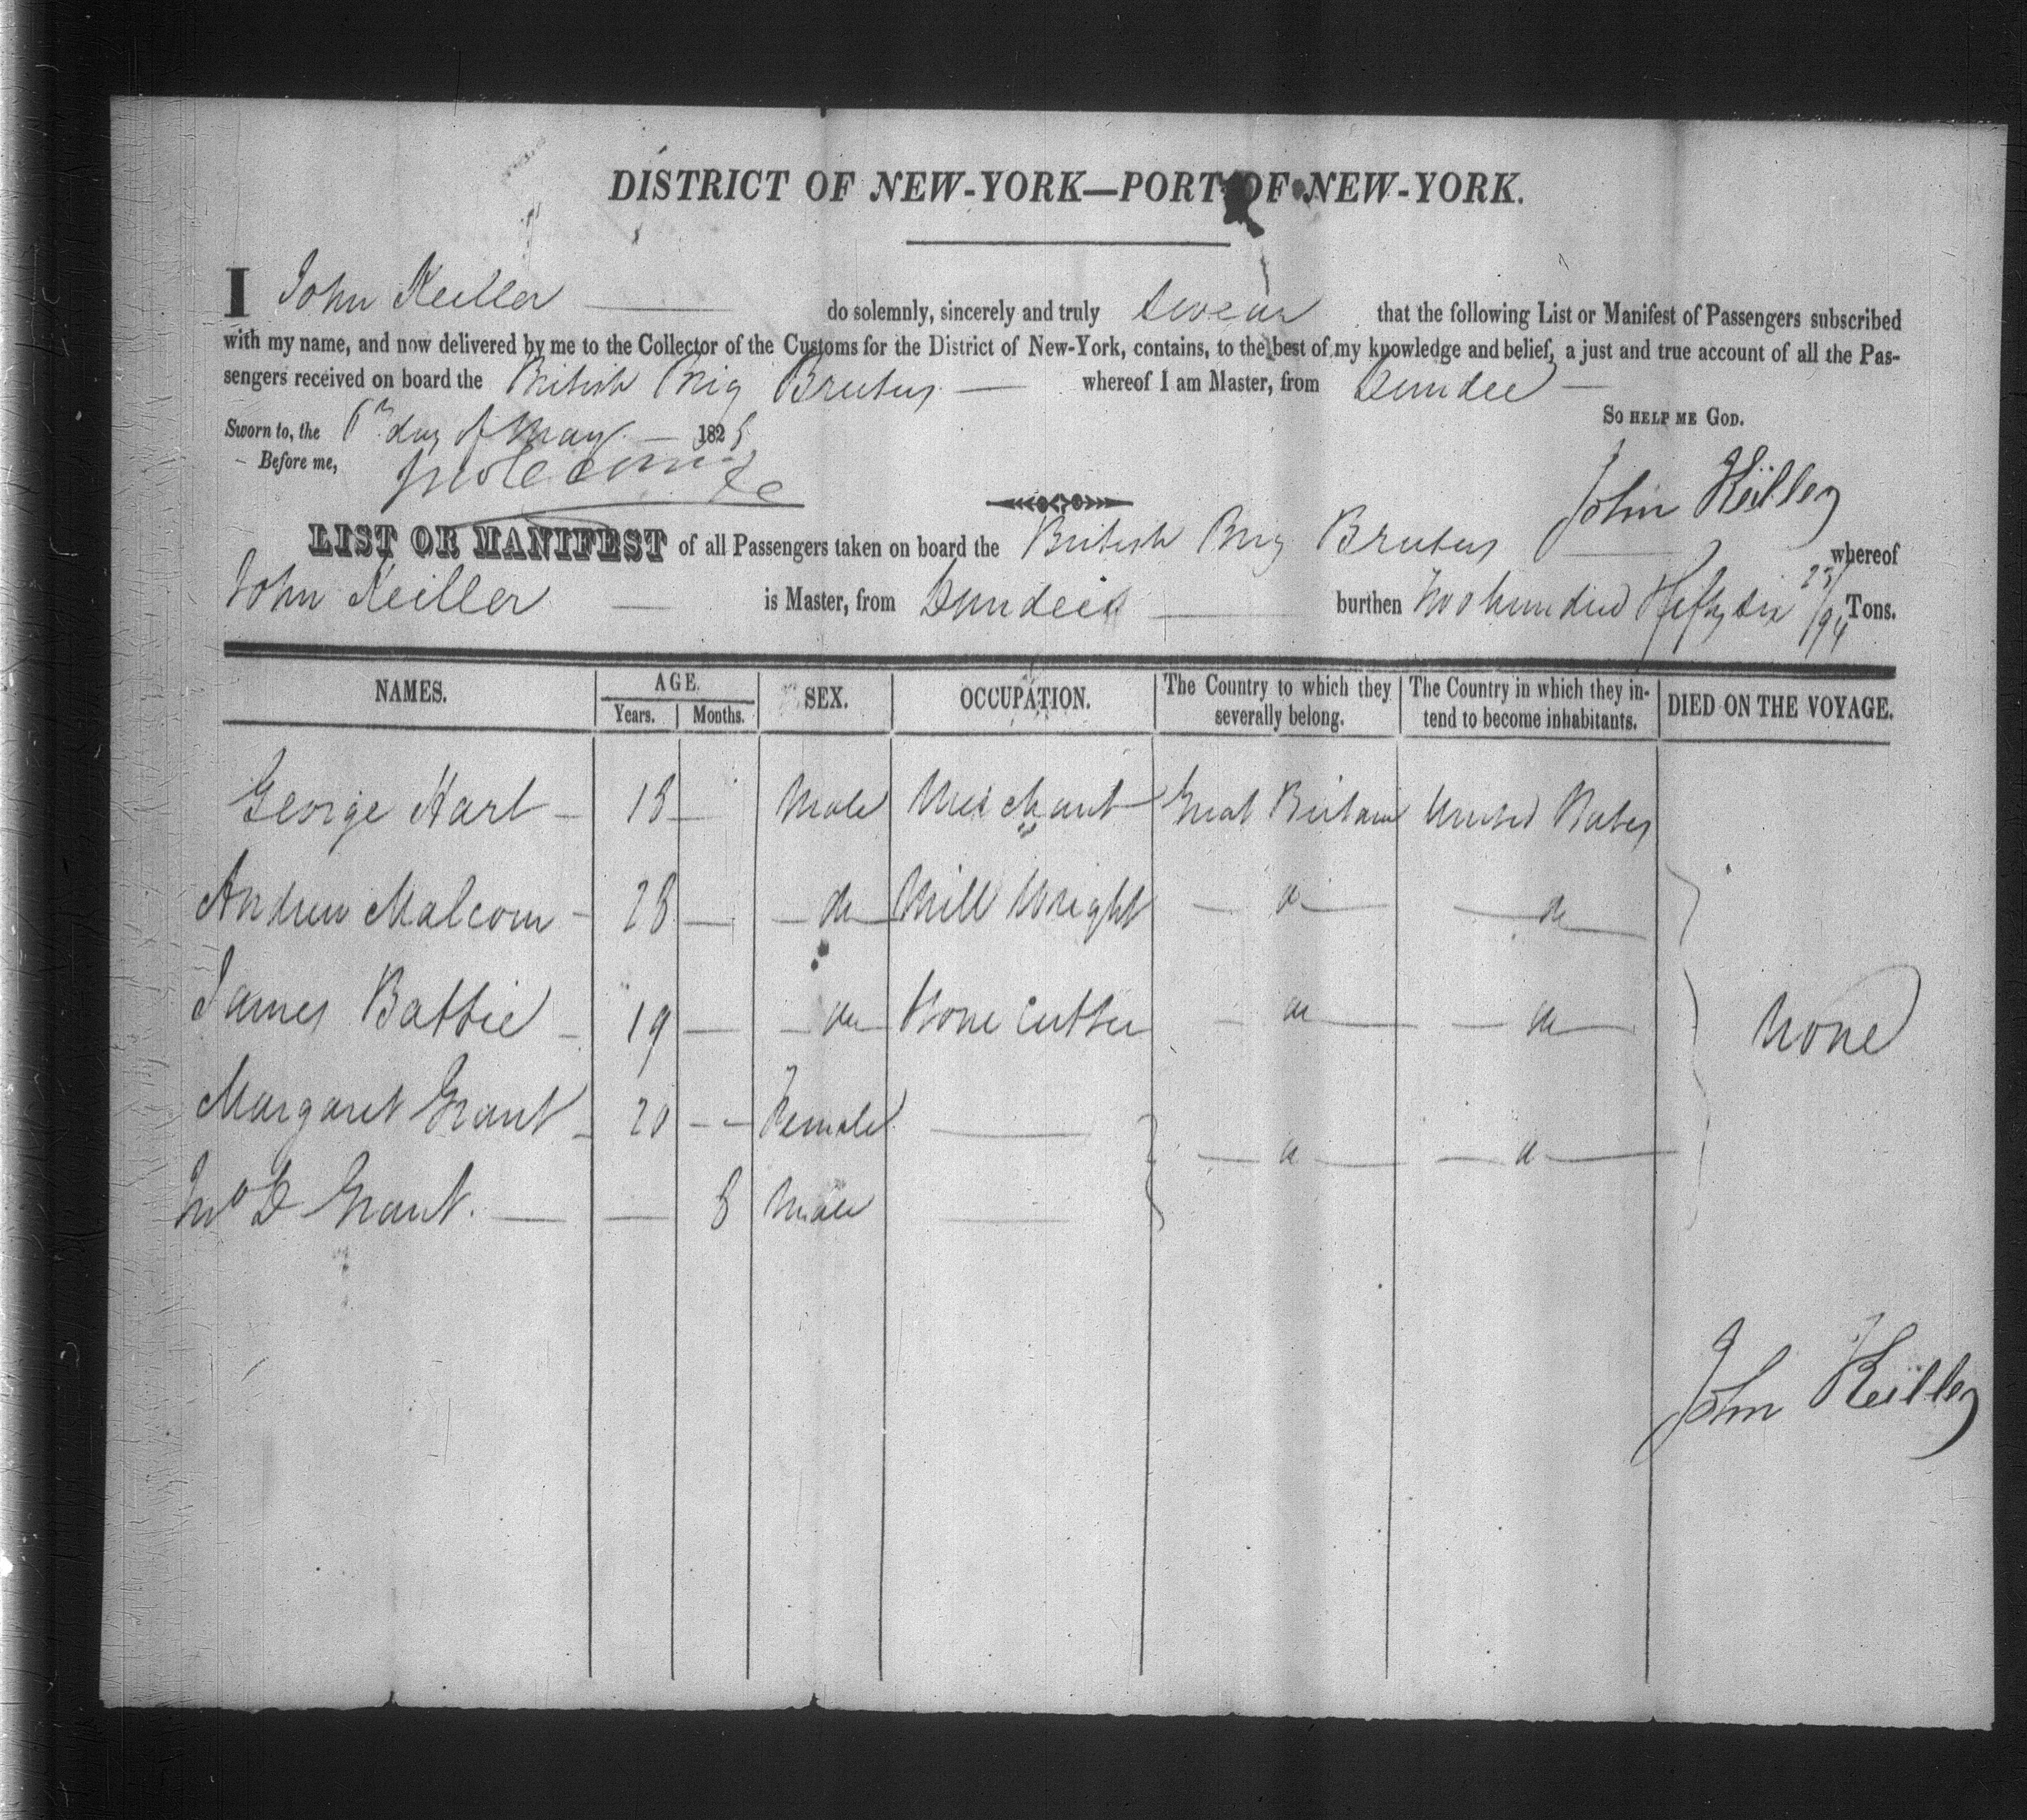 DISTRICT OF NEW-YORK—PORT OF NEW-YORK.
I John Keiller do solemnly, sincerely and truly Swear that the following List or Manifest of Passengers subscribed
with my name, and now delivered by me to the Collector of the Customs for the District of New-York, contains, to the best of my knowledge and belief, a just and true account of all the Pas-
sengers received on board the British Brig Brutus — whereof I am Master, from Dundee —
Sworn to, the day of May — 182
So HELP ME GOD.
Before me,
John Keiller
LIST OR MANIFEST of all Passengers taken on board the British Brig Brutus whereof
John Keiller — is Master, from Dundee burthen Two hundred Fifty Six 23/94 Tons.
NAMES. AGE. SEX. OCCUPATION. The Country to which they severally belong. The Country in which they in-tend to become inhabitants. DIED ON THE VOYAGE.
Years. Months.
George Hart — — Male Merchant Great Britain United States
Andrew Malcom — 28 — — do — Mill Wright — do — — do —
James Battie — 19 — — do — Cutter — do — — do — None
Margaret Grant — 20 — — Female —
— do — — do —
Grant. — — 8 Male —
John Keiller